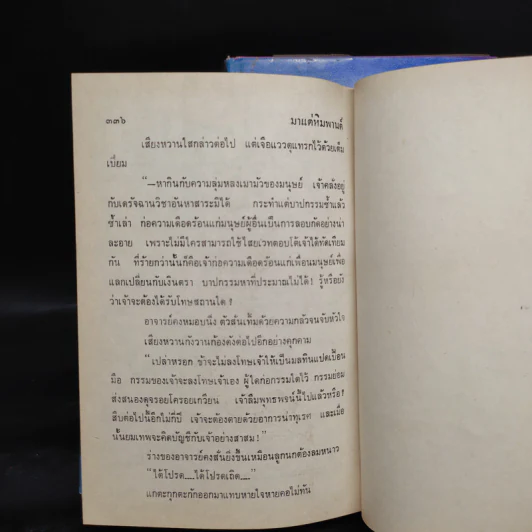 ๓๓๖ มาแต่หิมพานต์
เสียงหวานใสกล่าวต่อไป แต่เจือแววดุแทรกไว้ด้วยเต็ม
เปี่ยม
"—หากินกับความลุ่มหลงเมามัวของมนุษย์ เจ้าคลั่งอยู่
กับเดรัจฉานวิชาอันหาสาระมิได้ กระทำแต่บาปกรรมซ้ำแล้ว
ซ้ำเล่า ก่อความเดือดร้อนแก่มนุษย์ผู้อื่นเป็นการลอบกัดอย่างน่า
ละอาย เพราะไม่มีใครสามารถใช้ไสยเวทตอบโต้เจ้าได้ทัดเทียม
กัน ที่ร้ายกว่านั้นก็คือเจ้าก่อความเดือดร้อนแก่เพื่อนมนุษย์เพื่อ
แลกเปลี่ยนกับเงินตรา บาปกรรมหาที่ประมาณไม่ได้! รู้หรือยัง
ว่าเจ้าจะต้องได้รับโทษสถานใด?
อาจารย์คงหมอบนิ่ง ตัวสั่นเทิ้มด้วยความกลัวจนจับหัวใจ
เสียงหวานกังวานก้องดังต่อไปอีกอย่างคุกคาม
"เปล่าหรอก ข้าจะไม่ลงโทษเจ้าให้เป็นมลทินแปดเปื้อน
มือ กรรมของเจ้าจะลงโทษเจ้าเอง ผู้ใดก่อกรรมใดไว้ กรรมย่อม
ส่งสนองดุจรอยโครอยเกวียน เจ้าลืมพุทธพจน์นี้ไปแล้วหรือ?
สืบต่อไปนี้อีกไม่กี่ปี เจ้าจะต้องตายด้วยอาการน่าทุเรศ และเมื่อ
นั้นยมเทพจะคิดบัญชีกับเจ้าอย่างสาสม!"
ร่างของอาจารย์คงสั่นยิ่งขึ้นเหมือนลูกนกต้องลมหนาว
"ได้โปรด....ได้โปรดเถิด...."
แกตะกุกตะกักออกมาแทบหายใจหายคอไม่ทัน